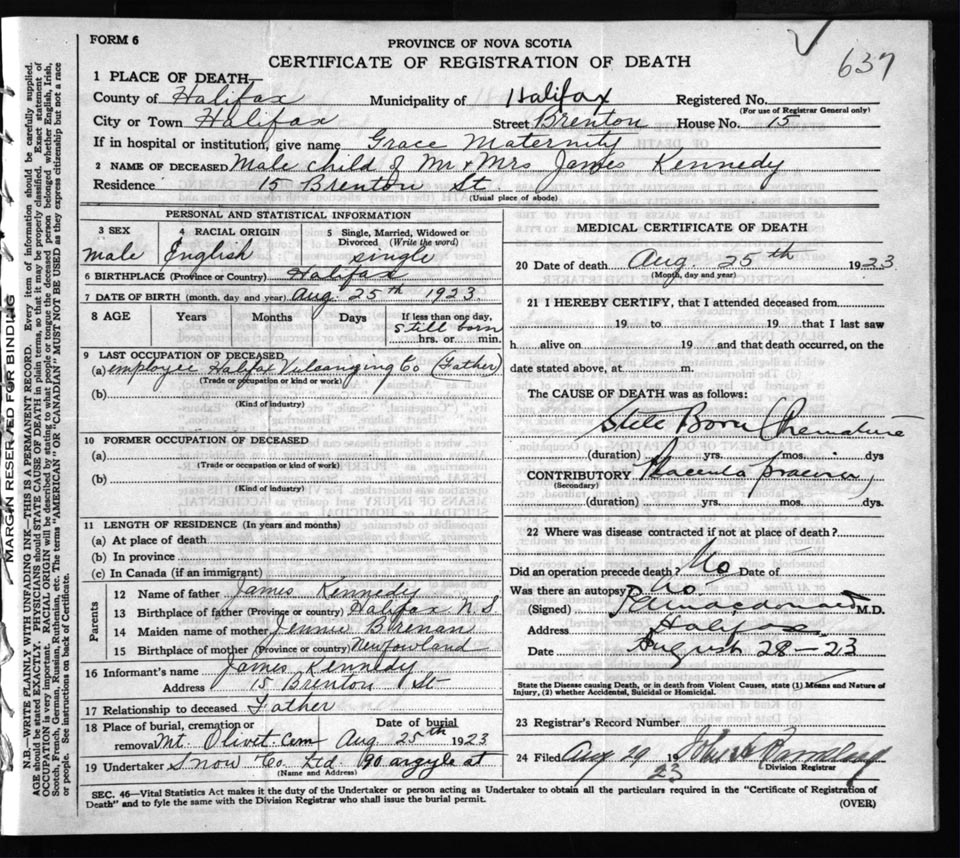 FORM 6
637
PROVINCE OF NOVA SCOTIA
CERTIFICATE OF REGISTRATION OF DEATH
1 PLACE OF DEATH—
County of Halifax Municipality of Halifax Registered No.
(For use of Registrar General only)
City or Town Halifax Street Brenton House No. 15
If in hospital or institution, give name Grace Maternity
2 NAME OF DECEASED Male child of Mr & Mrs James Kennedy
Residence 15 Brenton St.
(Usual place of abode)
PERSONAL AND STATISTICAL INFORMATION
3 SEX 4 RACIAL ORIGIN 5 Single, Married, Widowed or
Divorced (Write the word)
male English single
6 BIRTHPLACE (Province or Country) Halifax
7 DATE OF BIRTH (month, day and year) Aug. 25th 1923.
8 AGE Years Months Days If less than one day,
still born
hrs. or min.
9 LAST OCCUPATION OF DECEASED
(a) employee Halifax Co (Father)
(Trade or occupation or kind or work)
(b)
(Kind of industry)
10 FORMER OCCUPATION OF DECEASED
(a)
(Trade or occupation or kind of work)
(b)
(Kind of industry)
11 LENGTH OF RESIDENCE (In years and months)
(a) At place of death
(b) In province
(c) In Canada (if an immigrant)
Parents
12 Name of father James Kennedy
13 Birthplace of father (Province or country) Halifax N.S
14 Maiden name of mother Jennie Brenan
15 Birthplace of mother (Province or country) Newfowland
16 Informant's name James Kennedy
Address 15 Brenton St
17 Relationship to deceased Father
18 Place of burial, cremation or Date of burial
removal Mt. Olivet. Cem Aug 25th 1923
19 Undertaker Snow Co. Ltd. 90 argyle st
(Name and Address)
MEDICAL CERTIFICATE OF DEATH
20 Date of death Aug. 25th 1923.
(Month, day and year)
21 I HEREBY CERTIFY, that I attended deceased from
19 to 19 that I last saw
h alive on 19 and that death occurred, on the
date stated above, at m.
The CAUSE OF DEATH was as follows:
Still Born (Premature
(duration) yrs. mos. dys
CONTRIBUTORY Placenta praevia)
(Secondary)
(duration) yrs. mos. dys.
22 Where was disease contracted if not at place of death?
Did an operation precede death? No Date of
Was there an autopsy? No.
(Signed) Macdonald M.D.
Address Halifax
Date August 28-23
State the Disease causing Death, or in death from Violent Causes, state (1) Means and Nature of
Injury, (2) whether Accidental, Suicidal or Homicidal.
23 Registrar's Record Number
24 Filed Aug 29 1923 John
Division Registrar
SEC. 46—Vital Statistics Act makes it the duty of the Undertaker or person acting as Undertaker to obtain all the particulars required in the "Certificate of Registration of
Death" and to fyle the same with the Division Registrar who shall issue the burial permit.
(OVER)
MARGIN RESERVED FOR BINDING
N.B—WRITE PLAINLY WITH UNFADING INK—THIS IS A PERMANENT RECORD. Every item of information should be carefully supplied.
AGE should be stated EXACTLY. PHYSICIANS should STATE CAUSE OF DEATH in plain terms, so that it may be properly classified. Exact statement of
OCCUPATION is very important. RACIAL ORIGIN will be described by stating to what people or tongue the deceased person belonged whether English, Irish,
Scotch, French, German, Russian, Ruthenian, etc. The terms "AMERICAN" OR "CANADIAN" MUST NOT BE USED as they express citizenship but not a race
or people. See instructions on back of Certificate.